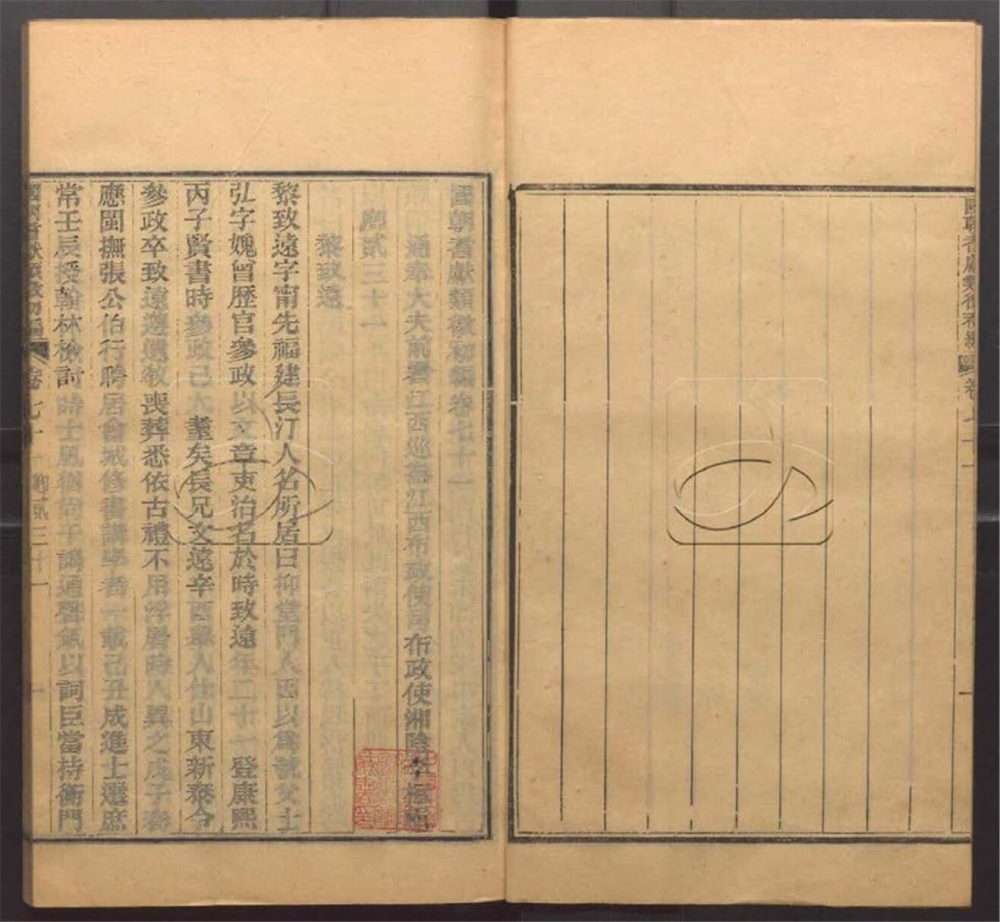 國朝耆獻類徵初編卷七十一
通奉大夫前署江西巡撫江西布政使司布政使湘陰李桓
卿貳三十一
黎致遠
黎致遠字甯先福建長汀人名所居曰抑堂門人因以爲號父士
弘字媿曾歷官參政以文章吏治名於時致遠年二十一登康熙
丙子賢書時參政已九 耋矣長兄文遠辛酉舉人仕山東新泰令
參政卒致遠遵遺教喪葬悉依古禮不用浮屠時人異之戊子春
應閩撫張公伯行聘居會城修書講學者一載己丑成進士選庶
常壬辰授翰林檢討時士風 尚干謁通聲氣以詞臣當持衡門
國朝耆獻類徵初編 卷七十一 卿貳三十一 一
國朝耆獻類徵初編 卷七十一